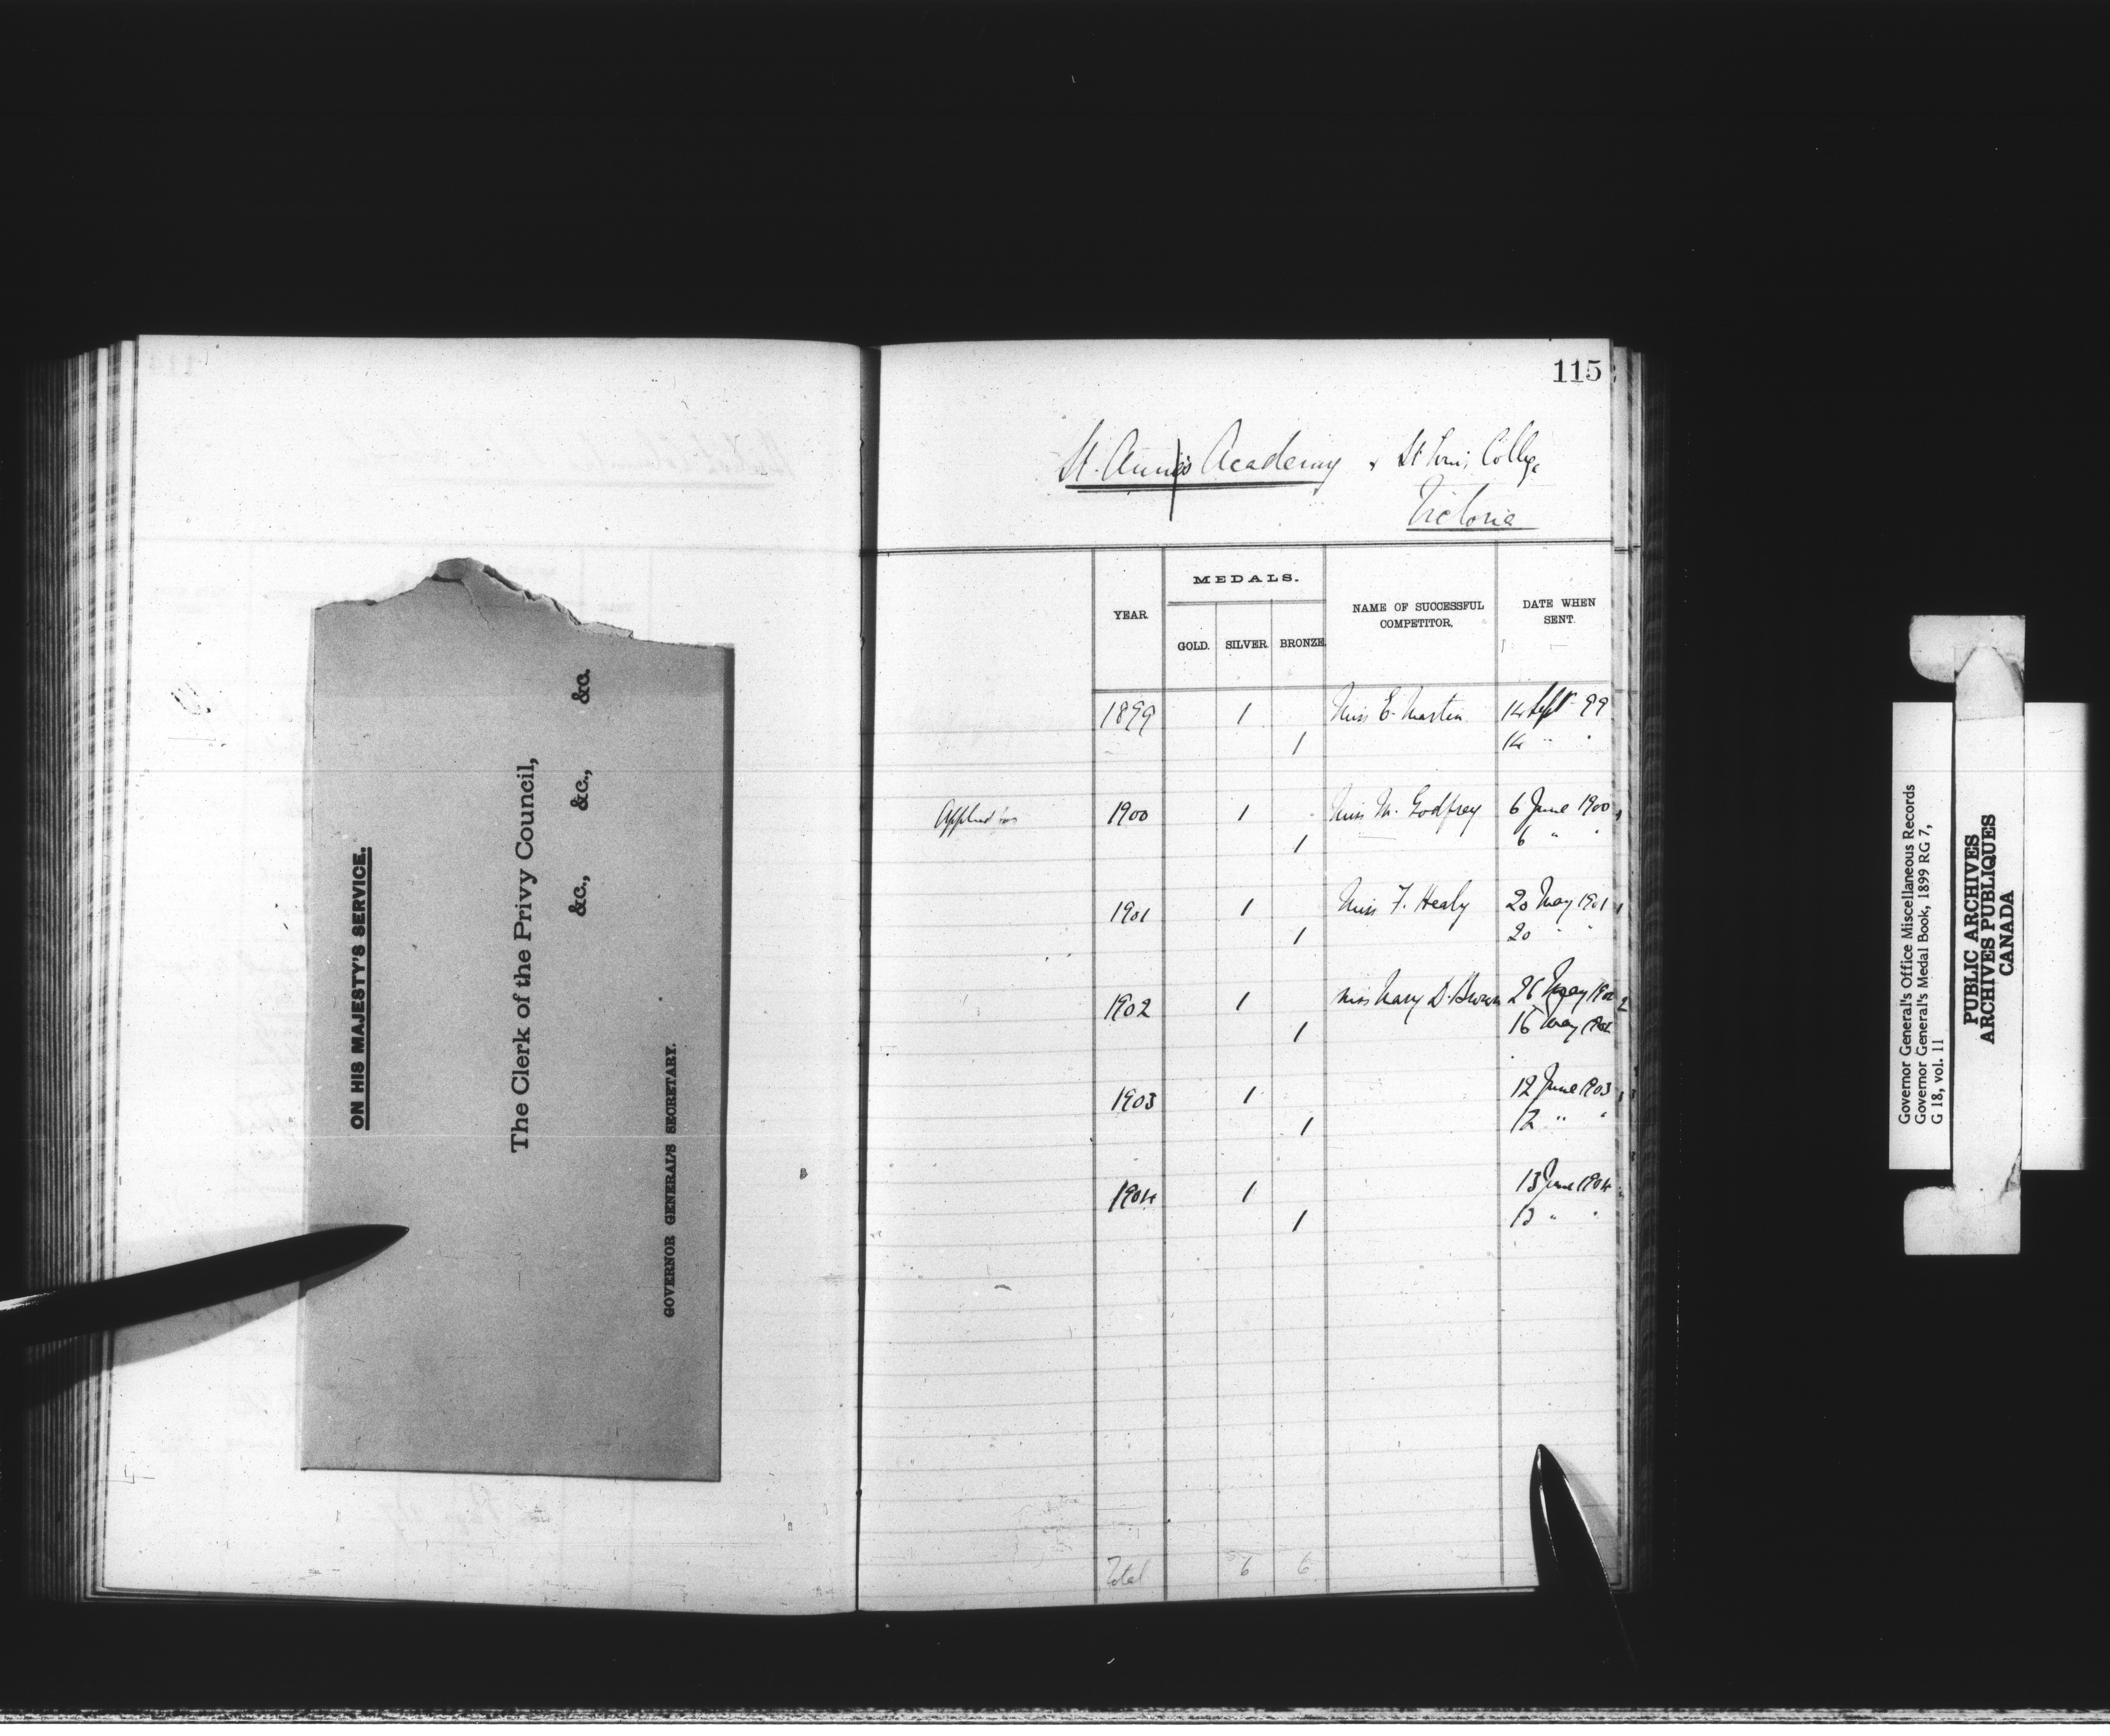 ON HIS MAJESTY'S SERVICE.
The Clerk of the Privy Council,
&c., &c., &c.
GOVERNOR GENERAL'S SECRETARY.
115
St. Ann's Academy & St Louis College
Victoria
YEAR. MEDALS. NAME OF SUCCESSFUL COMPETITOR. DATE WHEN SENT.
GOLD. SILVER. BRONZE.
1899 1 Miss E. Martin 14 Sept 99
1 14 " "
Applied for 1900 1 Miss M. Godfrey 6 June 1900
1 6 " "
1901 1 Miss F. Healy 20 May 1901
1 20 " "
1902 1 Miss Mary D. Brown 26 May 1902
1 16 May 1902
1903 1 12 June 1903
1 12 " "
1904 1 13 June 1904
1 13 " "
Total 6 6
Governor General's Office Miscellaneous Records
Governor General's Medal Book, 1899 RG 7,
G 18, vol. 11
PUBLIC ARCHIVES
ARCHIVES PUBLIQUES
CANADA